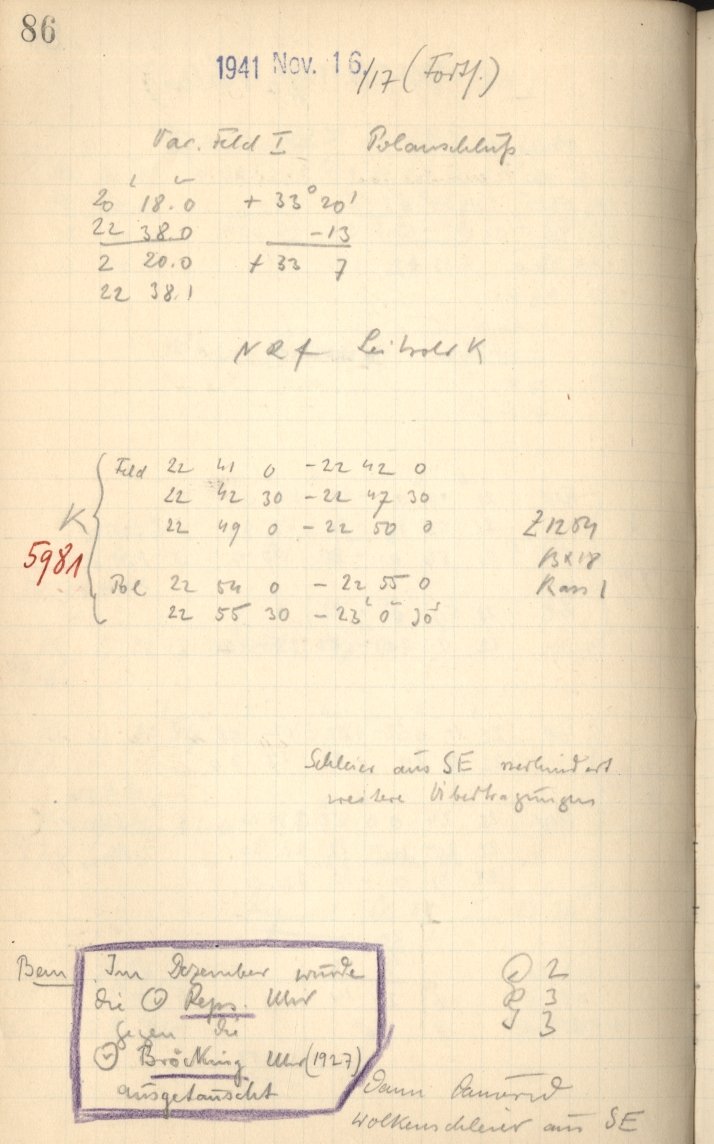 86
1941 Nov. 16./17 (Forts.)
Var. Feld I Polanschluß
20 18.0 + 33° 20'
22 38.0 -13
2 20.0 + 33 7
22 38.1
K
Feld 22 41 0 - 22 42 0
22 42 30 - 22 47 30
22 49 0 - 22 50 0
K
5981
Z 1204
Pol 22 54 0 - 22 55 0
22 55 30 - 23 0 30
Schleier aus SE verhindert
weitere Übertragungen
Bem Im Dezember wurde
die Reps. Uhr
gegen die
Bröcking Uhr (1927)
ausgetauscht
2
3
3
Dann
Wolkenschleier aus SE